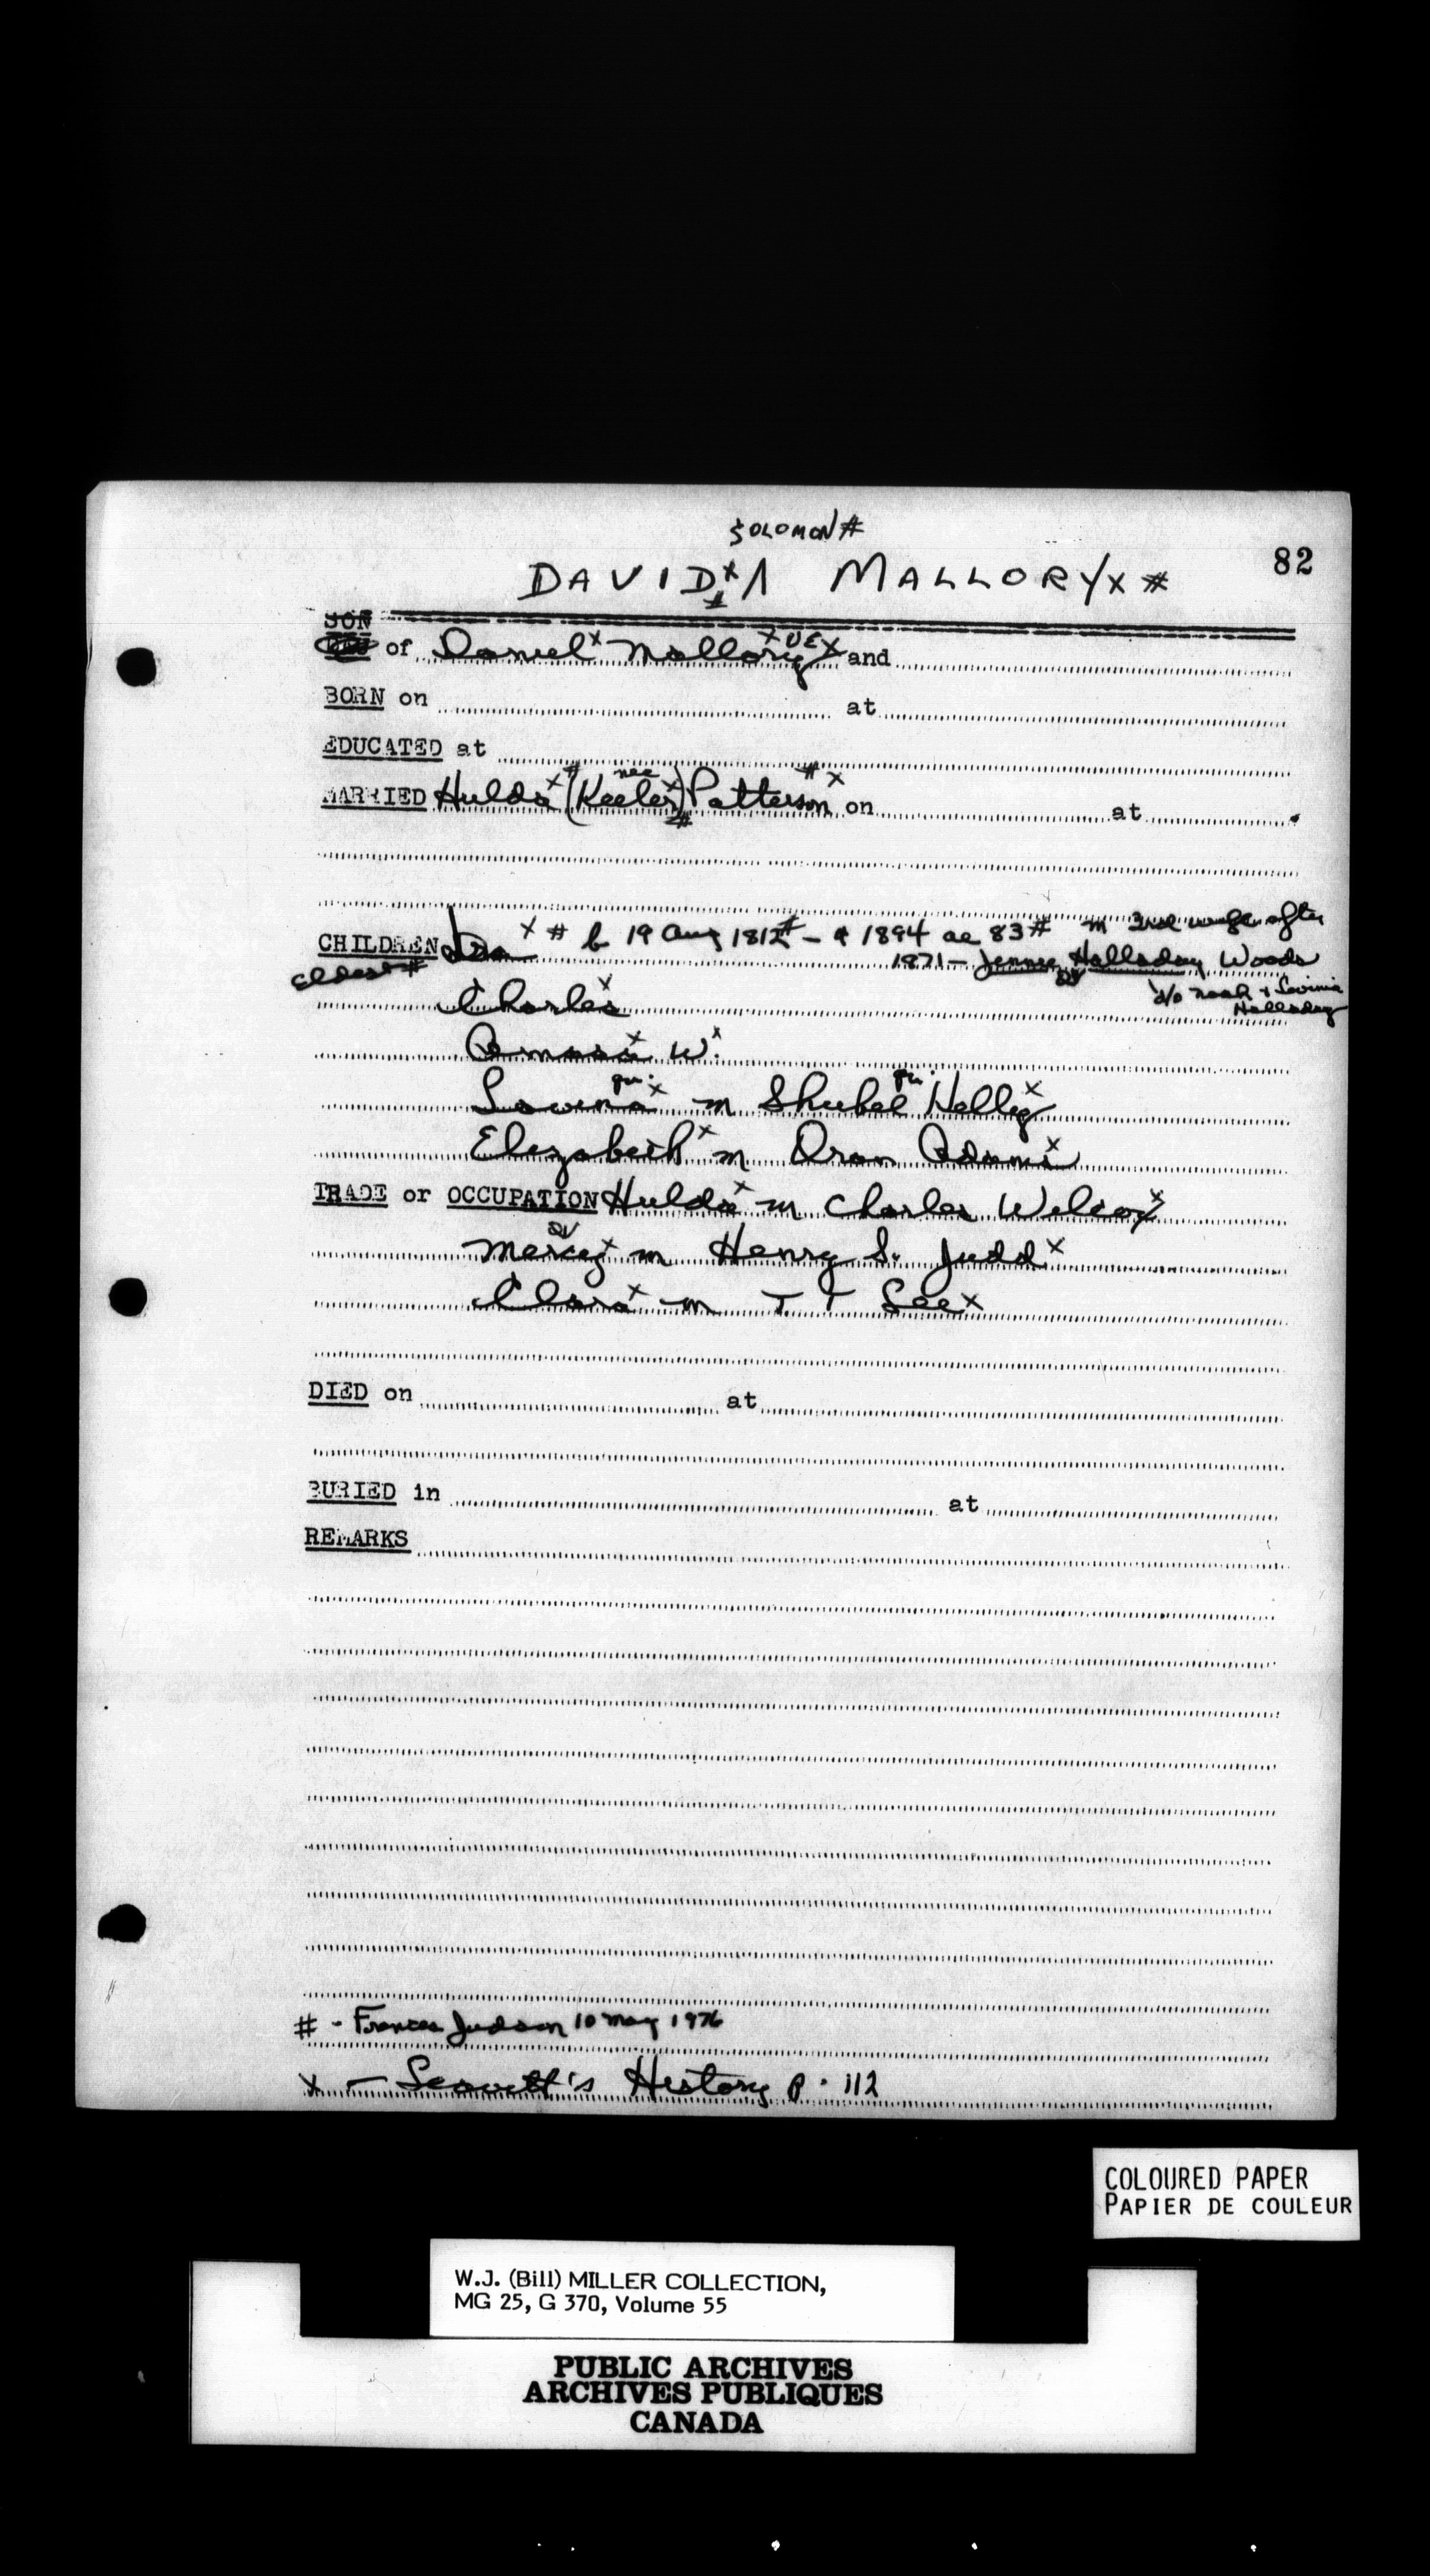 SOLOMON #
82
DAVID x ʌ MALLORY x #
SON
of Daniel x Mallory x UE x and
BORN on at
EDUCATED at
MARRIED Hulda x # (nee Keeler x) # Patterson # x on at
CHILDREN x # b 19 Aug 1812 # - d 1894 ae 83 # m 2nd wife after
Eldest # 1871 - Jenney Halladay Woods
d/o Noah + Lovinia
Charles x Halladay
Amasa x W. x
qu. qu.
Lovina x m Shubel Helly x
Elizabeth x m Oran Adams x
TRADE or OCCUPATION Hulda x m Charles Wilcox x
Mercy x m Henry S. Judd x
Clara x m T T Lee x
DIED on at
BURIED in at
REMARKS
# - Frances Judson 10 May 1976
x - Leavitt's History p. 112
COLOURED PAPER
PAPIER DE COULEUR
W.J. (Bill) MILLER COLLECTION,
MG 25, G 370, Volume 55
PUBLIC ARCHIVES
ARCHIVES PUBLIQUES
CANADA